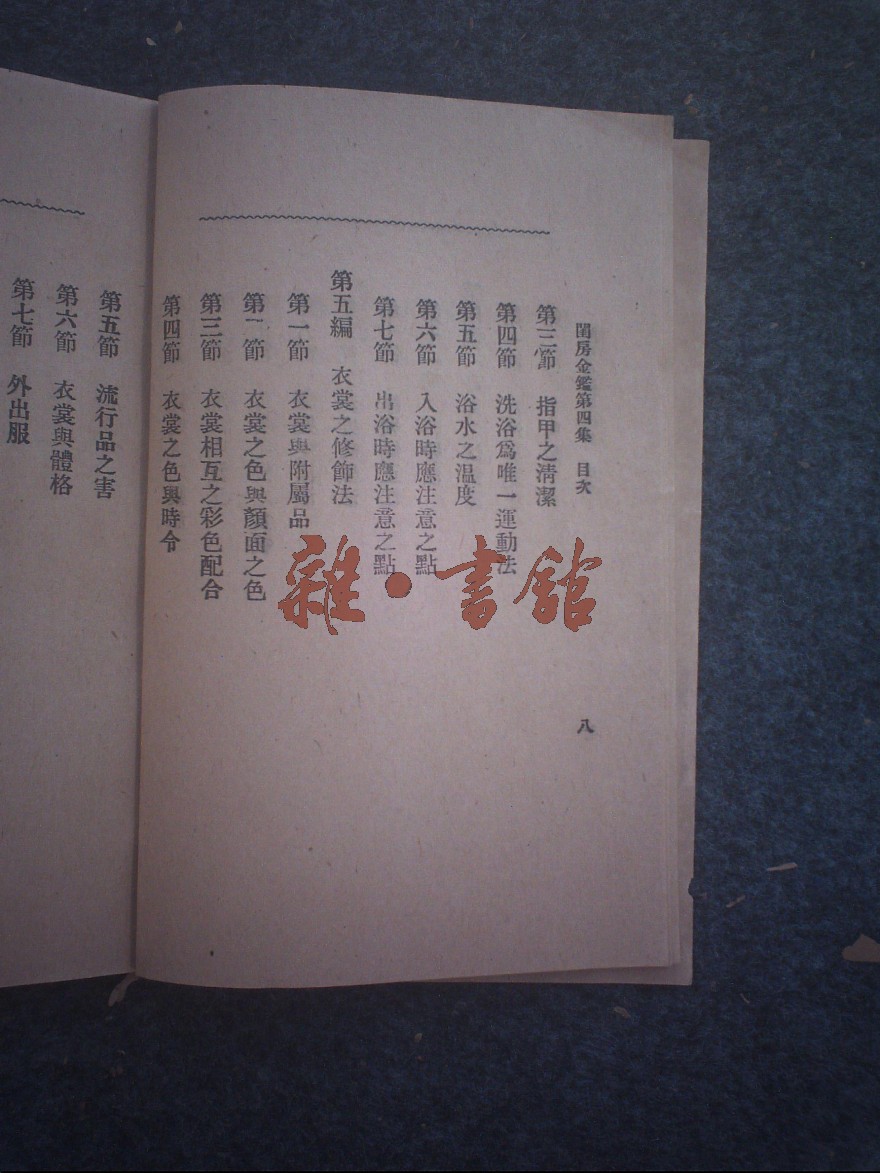 閨房金鑑第四集 目次
八
第三節 指甲之淸潔
第四節 洗浴爲唯一運動法
第五節 浴水之温度
第六節 入浴時應注意之點
第七節 出浴時應注意之點
第五編 衣裳之修飾法
第一節 衣裳與附屬品
第二節 衣裳之色與顏面之色
第三節 衣裳相互之彩色配合
第四節 衣裳之色與時令
第五節 流行品之害
第六節 衣裳與體格
第七節 外出服
雜·書館